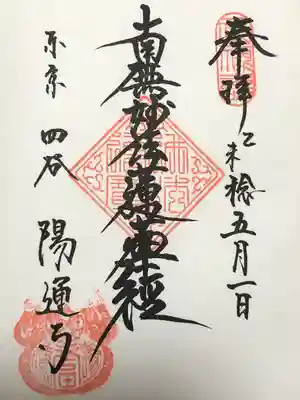 奉拝
乙未稔五月一日
南無妙法蓮華經
東京 四谷 陽運寺